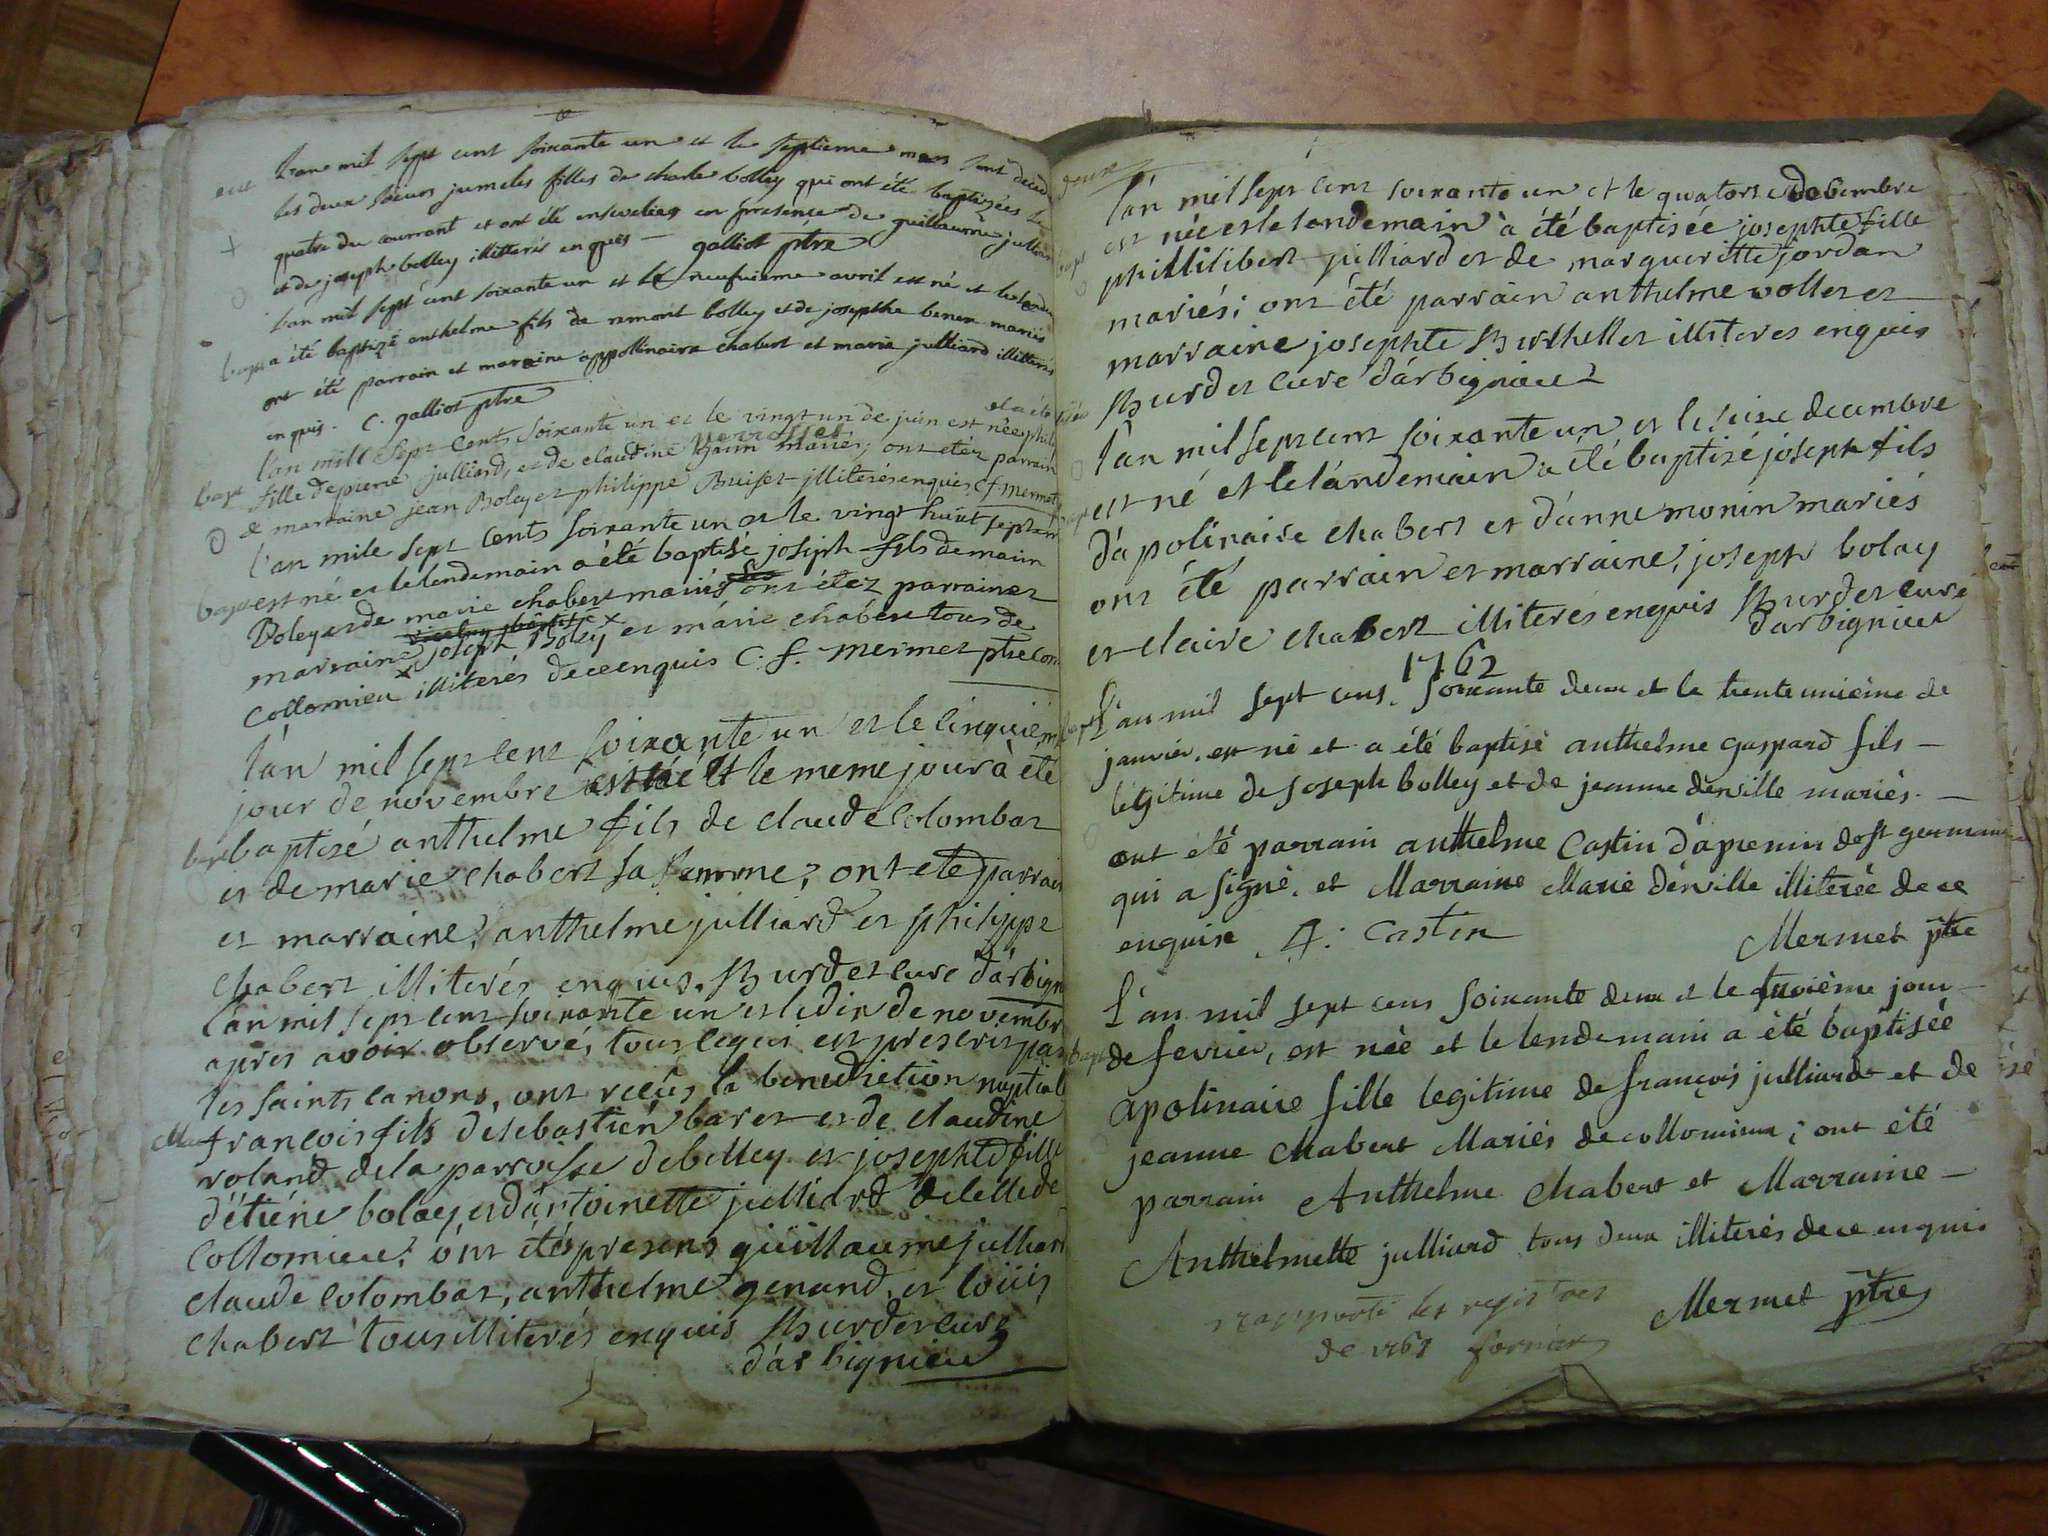 l'an mil sept cent soixante un et le septieme mars sont deced
les deux soeurs jumeles filles de charle bolley qui ont été baptisées le
quatre du courrant et ont été enseveliees en presence de guillaume julliar
et de joseph bolley illitterés enquis galliot ptre
l'an mil sept cent soixante un et le neufvieme avril est né et le lend
bapt a été baptizé anthelme fils de remont bolley et de josepthe benen mariés
ont été parrain et maraine appollinaire chabert et marie julliard illitterés
enquis. C. galliot ptre
l'an mille sept cents soixante un et le vingt un de juin est née phili
bapt fille de pierre julliard, et de claudine mariés, ont etéz parrain
et marraine jean Boley et philippe Buiset illiterés enquis C f mermet
l'an mile sept cents soixante un et le vingt huit septem
bapt est né et le lendemain a été baptisé joseph fils de
Boley et de marie chabert mariés ont étez parrain et
marraine joseph Boley et marie chabert tous de
Collomieu illiterés de ce enquis C. f. mermet ptre com
l'an mil sept cent soixante un et le cinquiém
jour de novembre est né et le meme jour à été
bapt baptizé anthelme fils de claude Colombat
et de marie chabert sa femme, ont eté parrain
et marraine, anthelme julliard et philippe
chabert illiterés enquis. Burdet curé d'arbign
l'an mil sept cent soixante un et le dix de novembr
apres avoir observé, tous ce qui est prescrit par
les saints canons, ont recûs la benediction nuptial
françois fils de sebastién baret et de claudine
roland de la parroisse de belley et josephte fille
d'étiéne boley, et d'antoinette julliard de celle de
Collomieu, ont étés presens güillaume julliard
claude Colombat, anthelme genand, et loüis
chabert tous illiterés enquis Burdet curé
d'arbignieu
l'an mil sept cent soixante un et le quatorse decembre
bapt est née et le lendemain à été baptisée josephte fille
phillilibert julliard et de margueritte jordan
mariés; ont été parrain anthelme vollet et
marraine josephte Burthellet illiteres enquis
Burdet curé d'arbignieu
l'an mil sept cent soixante un et le seize decembre
bapt est né et le lândemain a été baptizé joseph fils
d'apolinaire chabert et d'anne monin mariés
ont été parrain et marraine, joseph boley
et claire chabert illiterés enquis Burdet curé
d'arbignieu
1762
bapt L'an mil sept cens soixante deux et le trente unième de
janvier, est né et a été baptisé anthelme gaspard fils
légitime de joseph bolley et de jeanne derville mariés.
ont été parrain anthelme Castin d'apremin de st germain
qui a signé, et Marraine Marie derville illiterée de ce
enquise A: Castin Mermet ptre
L'an mil sept cens soixante deux et le troisième jour
bapt de fevrier, est née et le lendemain a été baptisée
apolinaire fille legitime de françois julliard et de
jeanne Chabert Mariés de collomieux; ont été
parrain Anthelme Chabert et Marraine
Anthelmette julliard tous deux illiterés de ce enquis
rapporté les registres Mermet ptre
de 1761 fornier